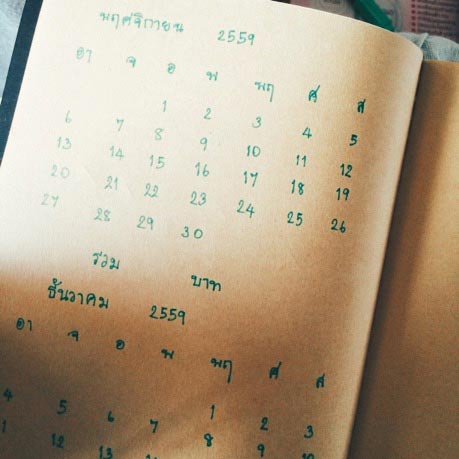 พฤศจิกายน 2559
อา จ อ พ พฤ ศ ส
1 2 3 4 5
6 7 8 9 10 11 12
13 14 15 16 17 18 19
20 21 22 23 24 25 26
27 28 29 30
รวม บาท
ธันวาคม 2559
อา จ อ พ พฤ ศ ส
1 2 3
4 5 6 7 8 9 10
12 13